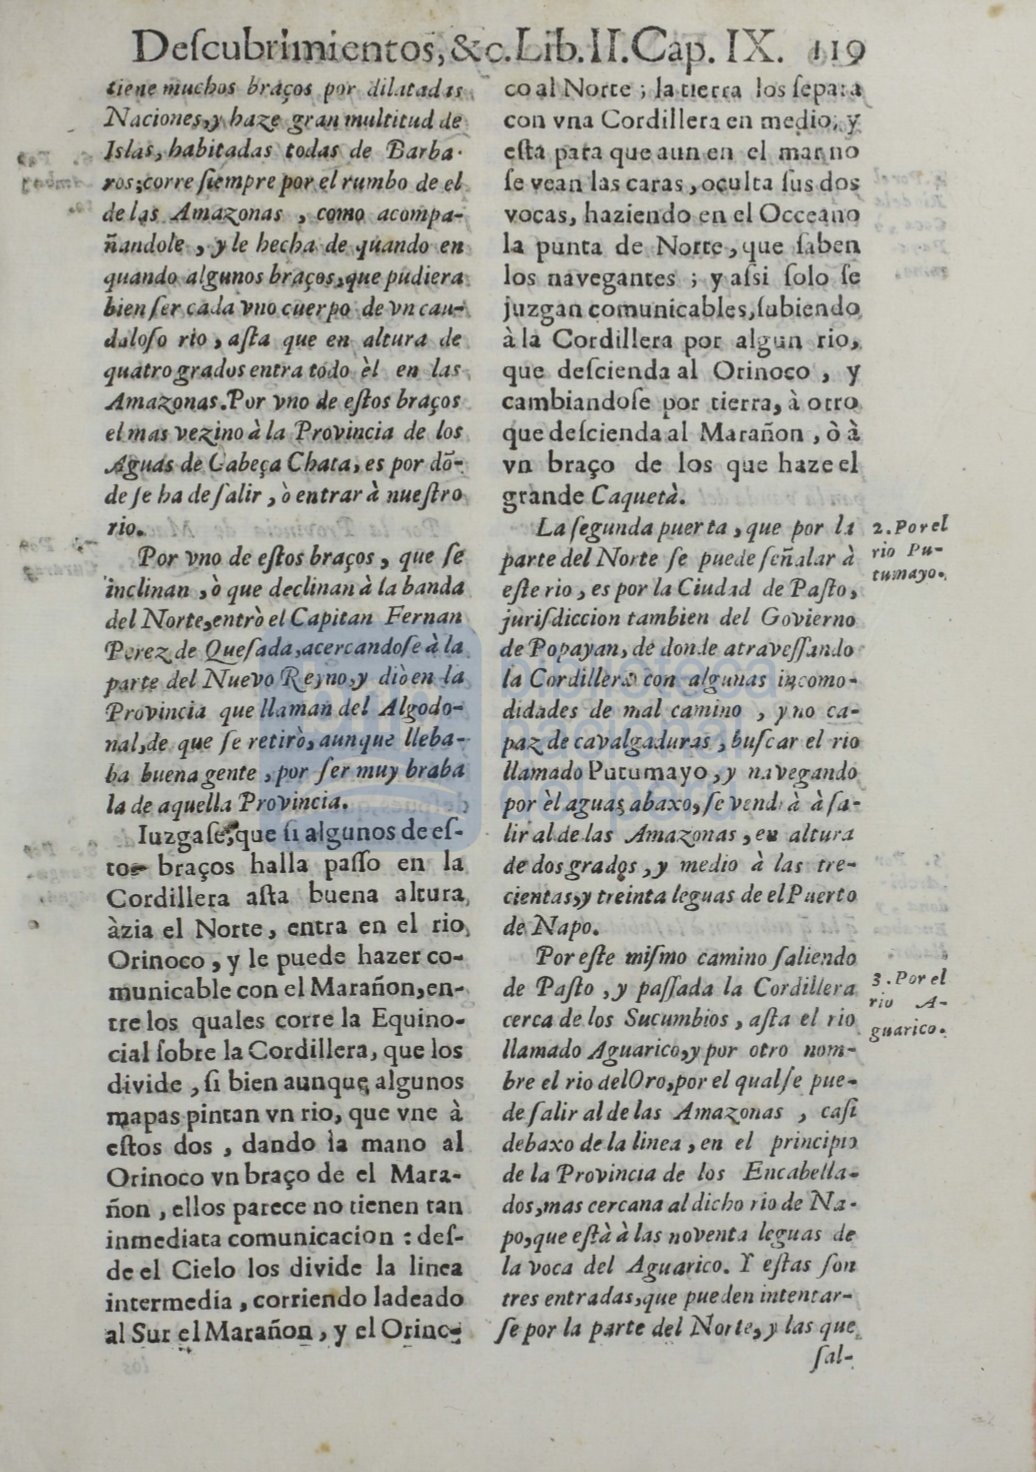 Deſcubrimientos, &c. Lib. II. Cap. IX. 119
tiene muchos braços por dilatadas
Naciones, y haze gran multitud de
Islas, habitadas todas de Barba-
ros; corre ſiempre por el rumbo de el
de las Amazonas, como acompa-
ñandole, y le hecha de quando en
quando algunos braços, que pudiera
bien ſer cada vno cuerpo de vn cau-
daloſo rio, aſta que en altura de
quatro grados entra todo èl en las
Amazonas. Por vno de eſtos braços
el mas vezino à la Provincia de los
Aguas de Cabeça Chata, es por dō-
de ſe ha de ſalir, ò entrar à nueſtro
rio.
Por vno de eſtos braços, que ſe
inclinan, ò que declinan à la banda
del Norte, entrò el Capitan Fernan
Perez de Queſada, acercandoſe à la
parte del Nuevo Reyno, y diò en la
Provincia que llaman del Algodo-
nal, de que ſe retirò, aunque lleba-
ba buena gente, por ſer muy braba
la de aquella Provincia.
Iuzgaſe, que ſi algunos de eſ-
tos braços halla paſſo en la
Cordillera aſta buena altura,
àzia el Norte, entra en el rio
Orinoco, y le puede hazer co-
municable con el Marañon, en-
tre los quales corre la Equino-
cial ſobre la Cordillera, que los
divide, ſi bien aunque algunos
mapas pintan vn rio, que vne à
eſtos dos, dando la mano al
Orinoco vn braço de el Mara-
ñon, ellos parece no tienen tan
inmediata comunicacion: deſ-
de el Cielo los divide la linea
intermedia, corriendo ladeado
al Sur el Marañon, y el Orino-
co al Norte; la tierra los ſepara
con vna Cordillera en medio, y
eſta para que aun en el mar no
ſe vean las caras, oculta ſus dos
vocas, haziendo en el Occeano
la punta de Norte, que ſaben
los navegantes; y aſsi ſolo ſe
juzgan comunicables, ſubiendo
à la Cordillera por algun rio,
que deſcienda al Orinoco, y
cambiandoſe por tierra, à otro
que deſcienda al Marañon, ò à
vn braço de los que haze el
grande Caquetà.
La ſegunda puerta, que por la
parte del Norte ſe puede ſeñalar à
eſte rio, es por la Ciudad de Paſto,
juriſdiccion tambien del Govierno
de Popayan, de donde atraveſſando
la Cordillera con algunas incomo-
didades de mal camino, y no ca-
paz de cavalgaduras, buſcar el rio
llamado Putumayo, y navegando
por èl aguas abaxo, ſe vendrà à ſa-
lir al de las Amazonas, en altura
de dos grados, y medio à las tre-
cientas, y treinta leguas de el Puerto
de Napo.
Por eſte miſmo camino ſaliendo
de Paſto, y paſſada la Cordillera
cerca de los Sucumbios, aſta el rio
llamado Aguarico, y por otro nom-
bre el rio del Oro, por el qual ſe pue-
de ſalir al de las Amazonas, caſi
debaxo de la linea, en el principio
de la Provincia de los Encabella-
dos, mas cercana al dicho rio de Na-
po, que eſtà à las noventa leguas de
la voca del Aguarico. Y eſtas ſon
tres entradas, que pueden intentar-
ſe por la parte del Norte, y las que
ſal-
2. Por el
rio Pu-
tumayo.
3. Por el
rio A-
guarico.
biblioteca
nacional
del perú